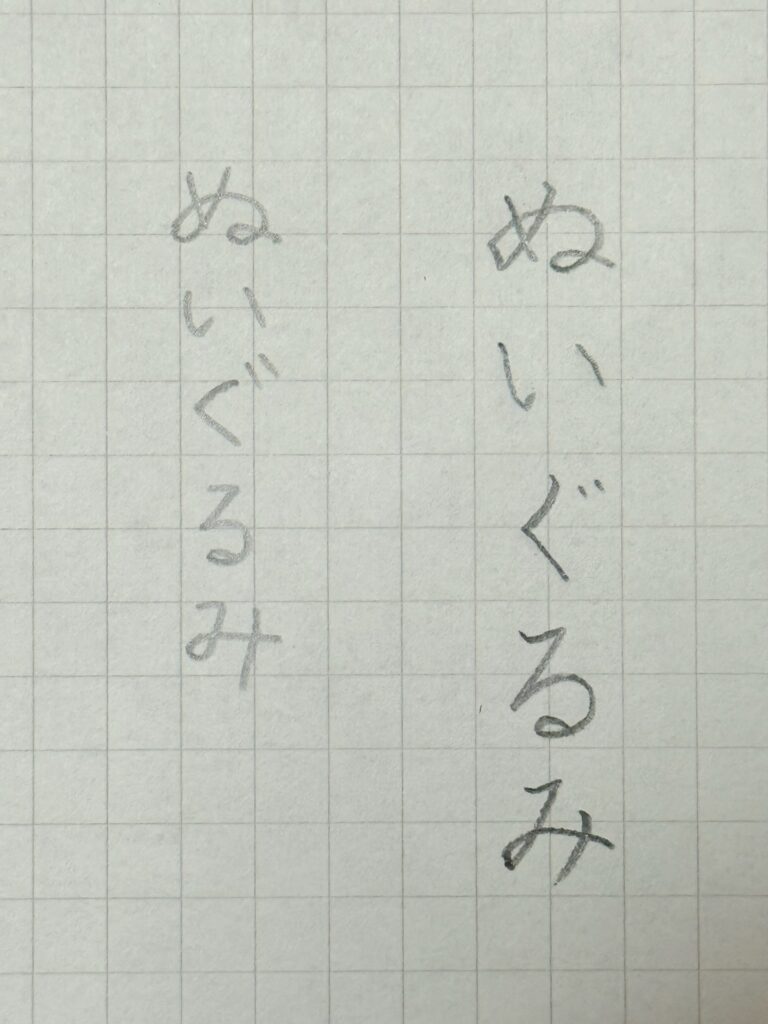 ぬいぐるみ
ぬいぐるみ